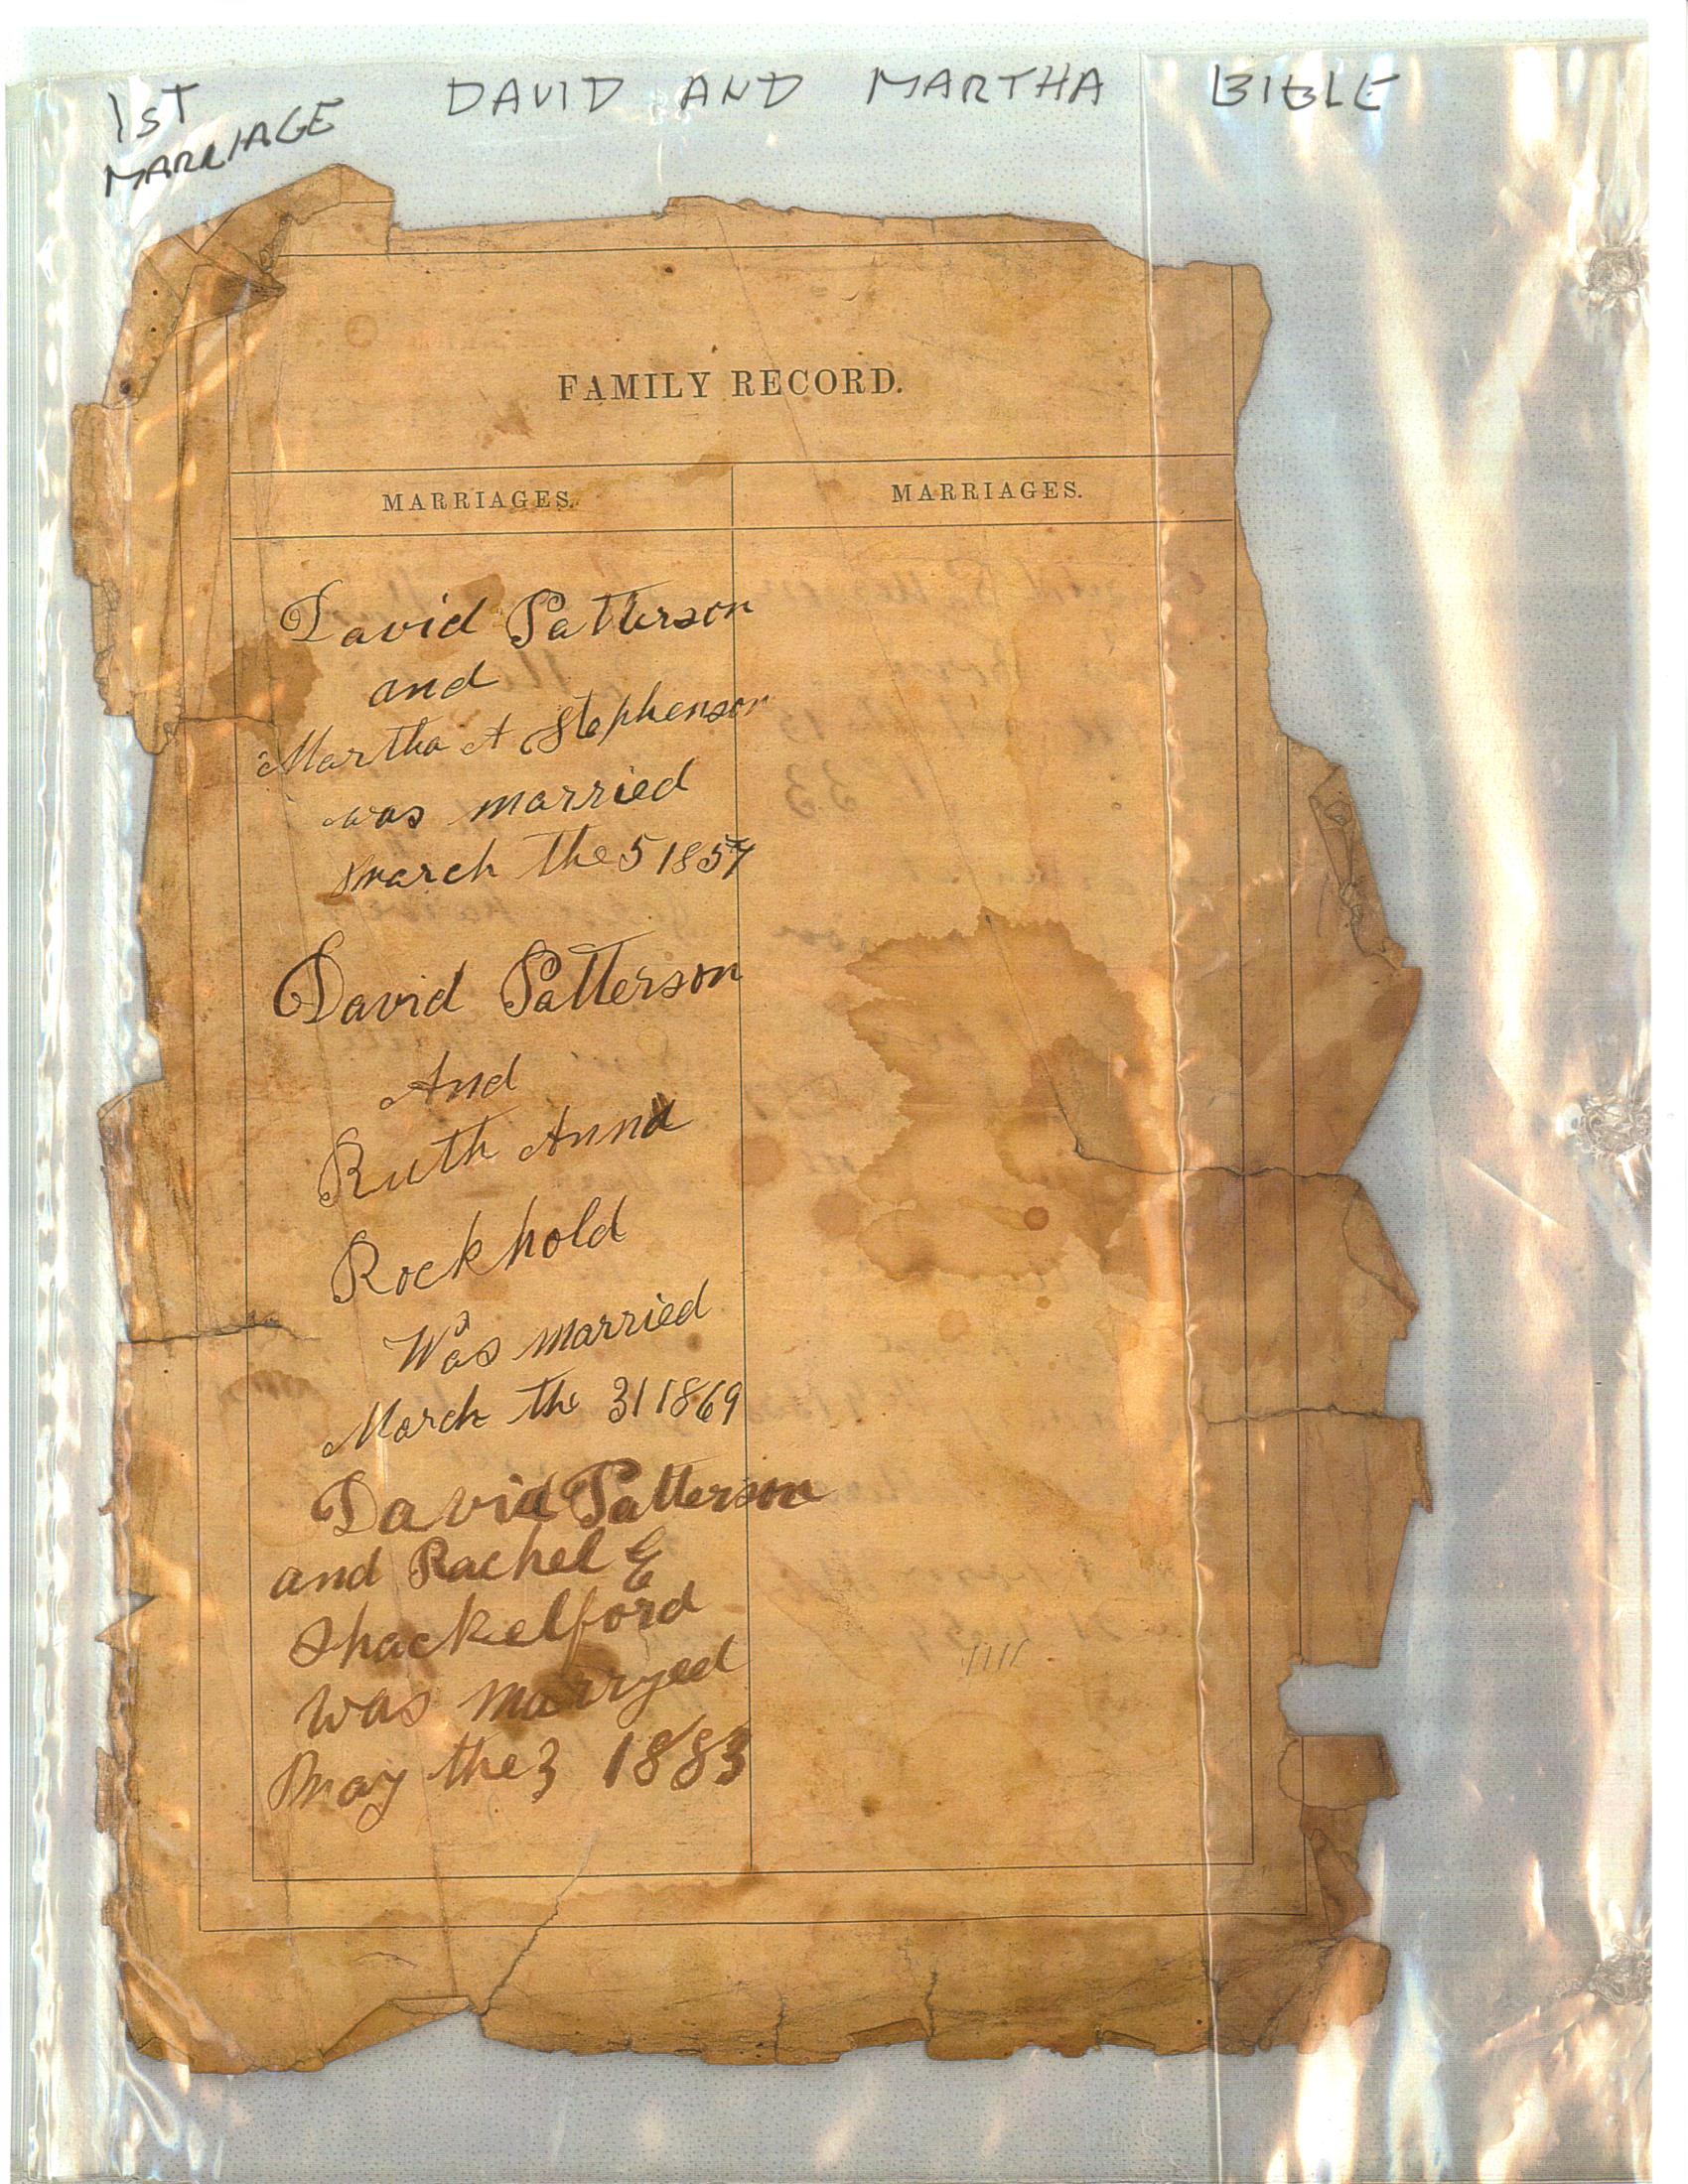 1ST MARRIAGE DAVID AND MARTHA BIBLE
FAMILY RECORD.
MARRIAGES.
David Patterson
and
Martha A Stephenson
was married
march the 5 1857
David Patterson
And
Ruth Anna
Rockhold
Was married
March the 31 1869
David Patterson
and Rachel E
Shackelford
was marryed
may the 3 1883
MARRIAGES.